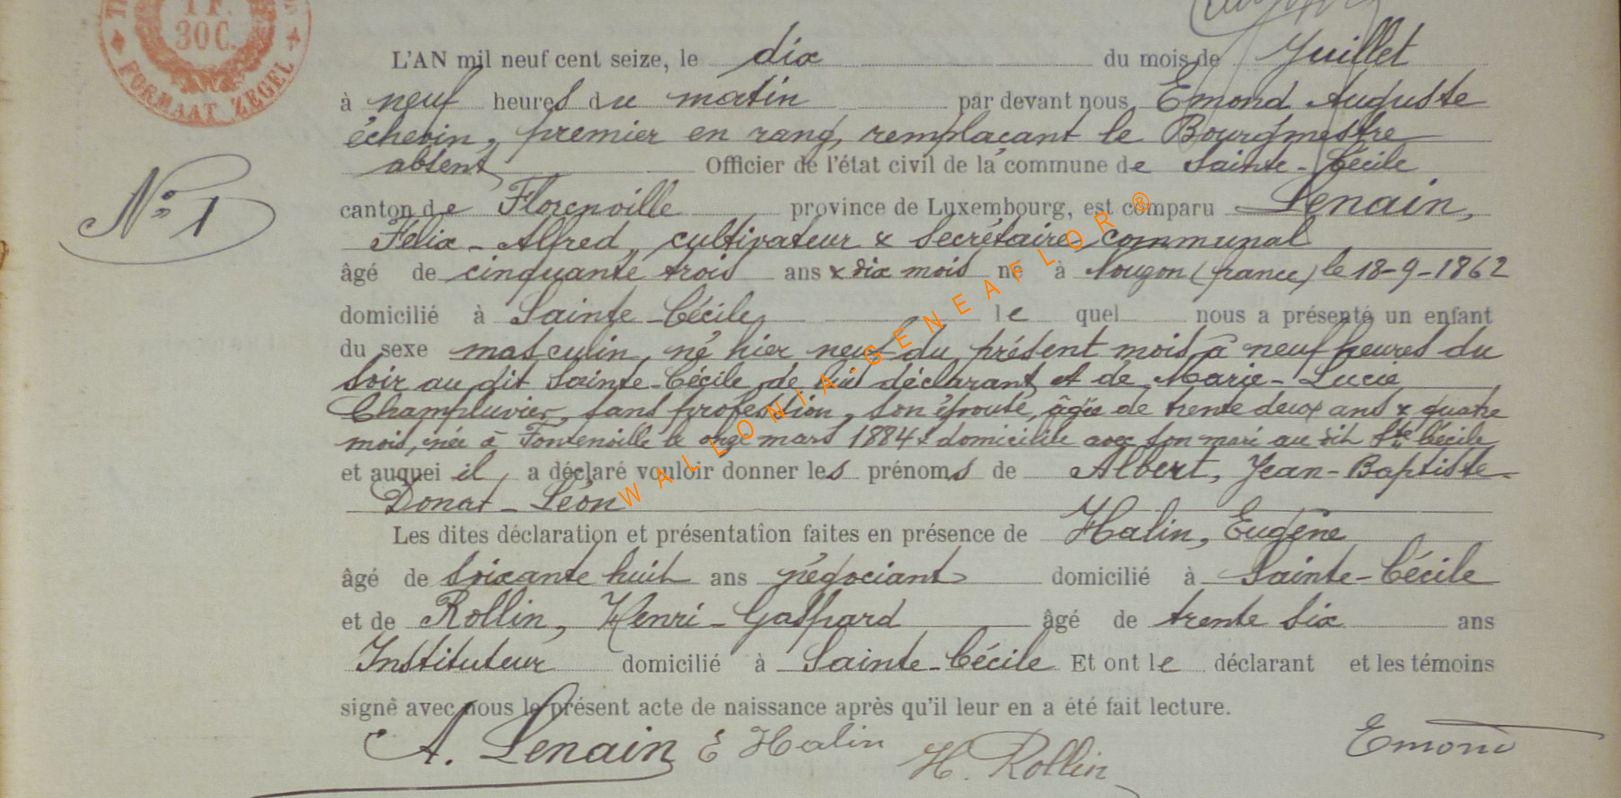 1 F.
30 C.
FORMAAT ZEGEL
L'AN mil neuf cent seize, le dix du mois de Juillet
à neuf heures du matin par devant nous Emond Auguste
échevin, premier en rang, remplaçant le Bourgmestre
absent Officier de l'état civil de la commune de Sainte-Cécile
N° 1
canton de Florenville province de Luxembourg, est comparu Lenain,
Félix-Alfred, cultivateur & Secrétaire communal
âgé de cinquante trois ans & dix mois né à Nougon (france) le 18-9-1862
domicilié à Sainte-Cécile le quel nous a présenté un enfant
du sexe masculin, né hier neuf du présent mois à neuf heures du
soir au dit Sainte-Cécile, de lui déclarant et de Marie-Lucie
Champluvier, sans profession, son épouse, âgée de trente deux ans & quatre
mois, née à Fontenoille le onze mars 1884 & domiciliée avec son mari au dit Ste Cécile
et auquel il a déclaré vouloir donner les prénoms de Albert, Jean-Baptiste-
Donat-Léon
Les dites déclaration et présentation faites en présence de Halin, Eugène
âgé de soixante huit ans négociant domicilié à Sainte-Cécile
et de Rollin, Henri-Gaspard âgé de trente six ans
Instituteur domicilié à Sainte-Cécile Et ont le déclarant et les témoins
signé avec nous le présent acte de naissance après qu'il leur en a été fait lecture.
A. Lenain E Halin H. Rollin Emond
WALLONIA-GENEAFLOR®